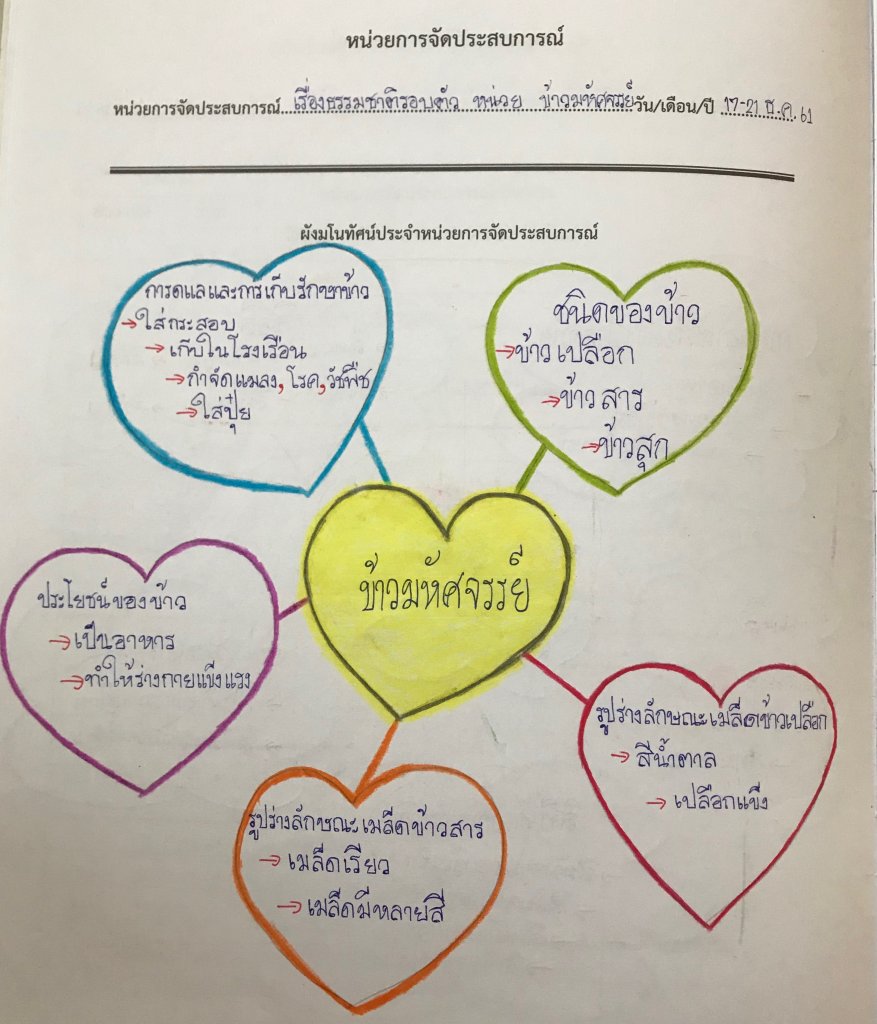 หน่วยการจัดประสบการณ์
หน่วยการจัดประสบการณ์ เรื่องธรรมชาติรอบตัว หน่วย ข้าวมหัศจรรย์ วัน/เดือน/ปี 17-21 ธ.ค. 61
ผังมโนทัศน์ประจำหน่วยการจัดประสบการณ์
การดูแลและการเก็บรักษาข้าว
→ ใส่กระสอบ
→ เก็บในโรงเรือน
→ กำจัดแมลง, โรค, วัชพืช
→ ใส่ปุ๋ย
ชนิดของข้าว
→ ข้าวเปลือก
→ ข้าวสาร
→ ข้าวสุก
ข้าวมหัศจรรย์
ประโยชน์ของข้าว
→ เป็นอาหาร
→ ทำให้ร่างกายแข็งแรง
รูปร่างลักษณะเมล็ดข้าวเปลือก
→ สีน้ำตาล
→ เปลือกแข็ง
รูปร่างลักษณะเมล็ดข้าวสาร
→ เมล็ดเรียว
→ เมล็ดมีหลายสี